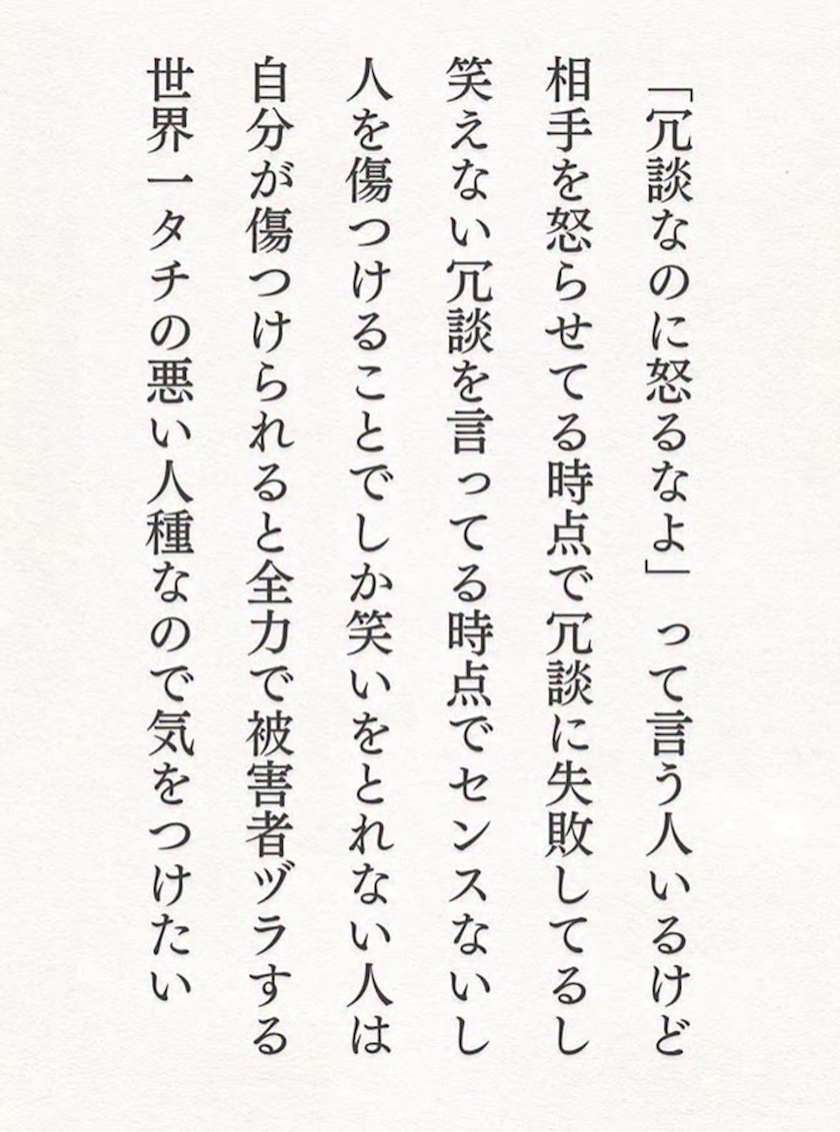 「冗談なのに怒るなよ」って言う人いるけど
相手を怒らせてる時点で冗談に失敗してるし
笑えない冗談を言ってる時点でセンスないし
人を傷つけることでしか笑いをとれない人は
自分が傷つけられると全力で被害者ヅラする
世界一タチの悪い人種なので気をつけたい